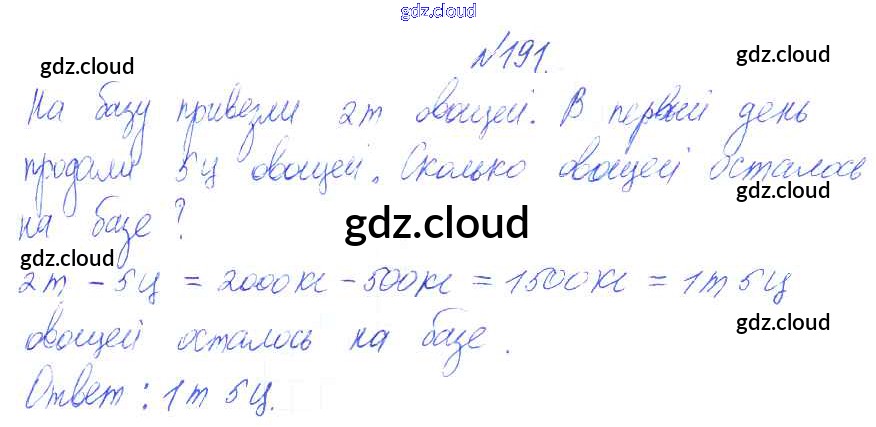 gdz.cloud
№191.
gdz.cloud
gdz.cloud
На базу привезли 2т овощей. В первый день
продали 5ц овощей. Сколько овощей осталось
gdz.cloud
gdz.cloud
на базе?
gdz.cloud
gdz.cloud
2т - 5ц = 2000кг - 500кг = 1500кг = 1т 5ц
овощей осталось на базе.
gdz.cloud
Ответ: 1т 5ц.